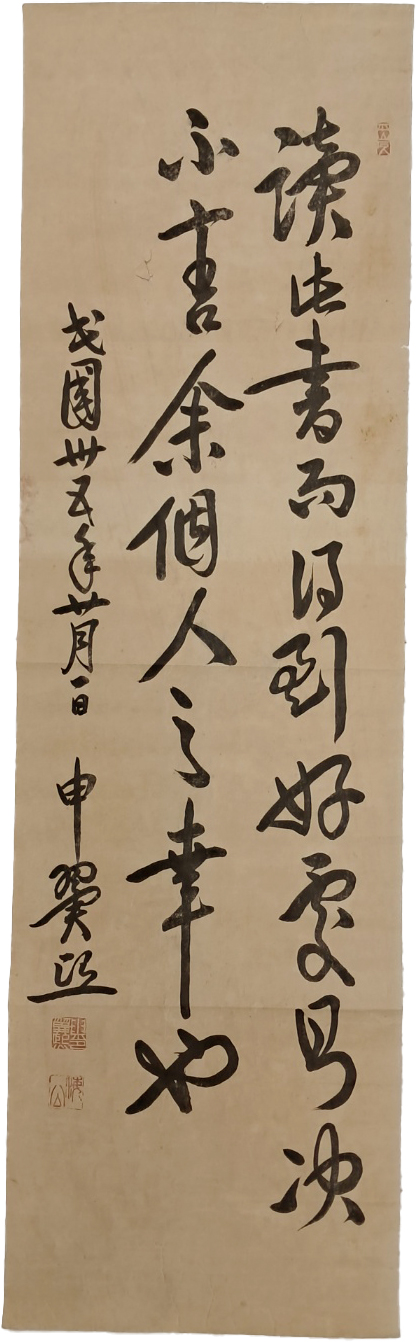 讀此書而得到好處決
不啻余個人之幸也
民國卅五年月一日 申翼熙